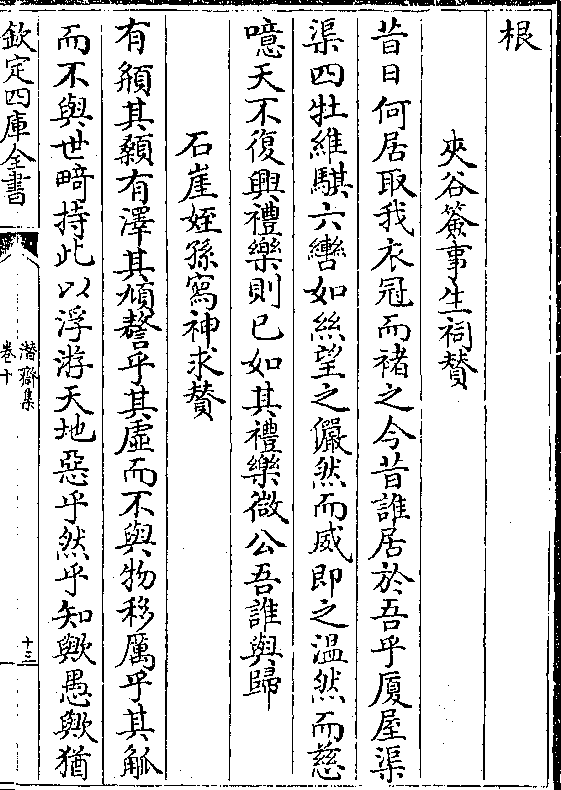 根
夾谷簽事生祠賛
昔日何居取我衣冠而褚之今昔誰居於吾乎厦屋渠
渠四牡維騏六轡如絲望之儼然而威即之温然而慈
噫天不復興禮樂則已如其禮樂微公吾誰與歸
石崖姪孫寫神求賛
有頯其顙有澤其頄謷乎其虚而不與物移厲乎其觚
而不與世畸持此以浮游天地惡乎然乎知歟愚歟猶
欽定四庫全書
潛齋集
卷十
十三